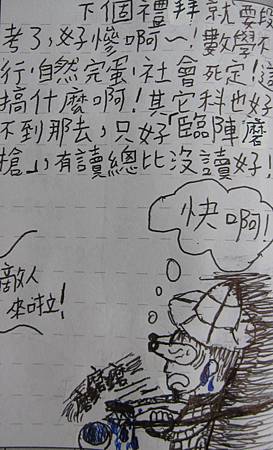 下個禮拜就要段
考了,好慘啊~!數學不
行,自然完蛋,社會死定!這
搞什麼啊!其它科也好
不到那去,只好「臨陣磨
槍」,有讀總比沒讀好!
快啊!
敵人
來啦!
磨磨磨